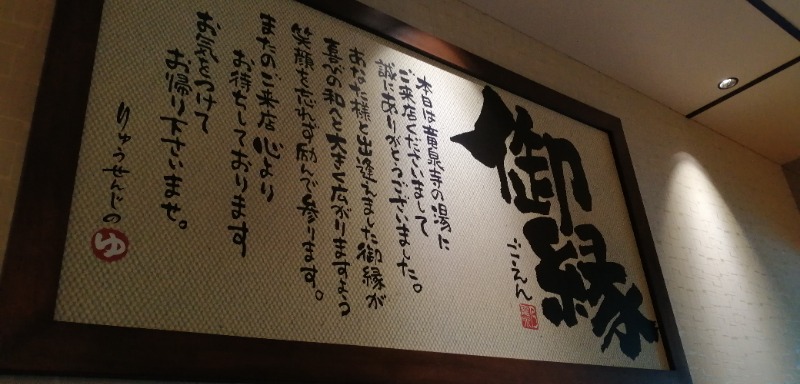 御縁
ごえん
本日は竜泉寺の湯に
ご来店くださいまして
誠にありがとうございました。
あなた様と出逢えました御縁が
喜びの和へと大きく広がりますよう
笑顔を忘れず励んで参ります。
またのご来店 心より
お待ちしております
お気をつけて
お帰り下さいませ。
りゅうせんじの
ゆ